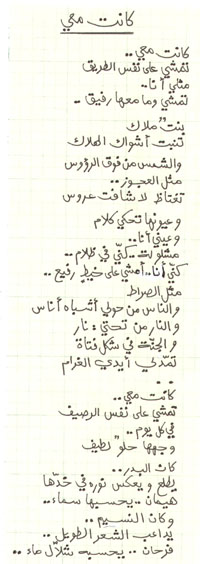 كانت معي
كانت معي..
تمشي على نفس الطريق
مثلي أنا..
تمشي وما معها رفيق..
بنت "ملاك
تنبت أشواك الهلاك
والشمس من فوق الرؤوس
مثل العجوز..
تغتاظ لا شافت عروس
وعيونها تحكي كلام
وعيني أنا..
مشلولة.. كنّي في ظلام..
كنّي أنا.. أمشي على خيطٍ رفيع..
مثل الصراط
والناس من حولي أشباه أناس
والنار من تحتي: نار
والجنّة في شكل فتاة
تمدّلي أيدي الغرام
..
كانت معي..
تمشي على نفس الرصيف
في كل يوم..
وجهها حلو" لطيف
كان البدر..
يطلع ويعكس نوره في خدّها
هيمان.. يحسبها سماء..
وكان النسيم..
يداعب الشعر الطويل..
فرحان.. يحسبه شلّال ماء..